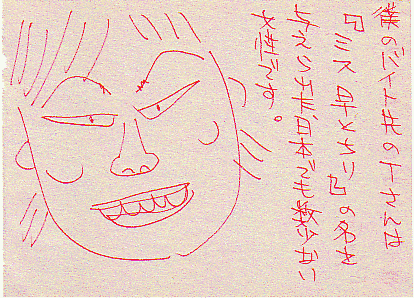 僕のバイト先のTさんは
『ミス早とちり』の名を
与えられた、日本でも数少ない
女性です。